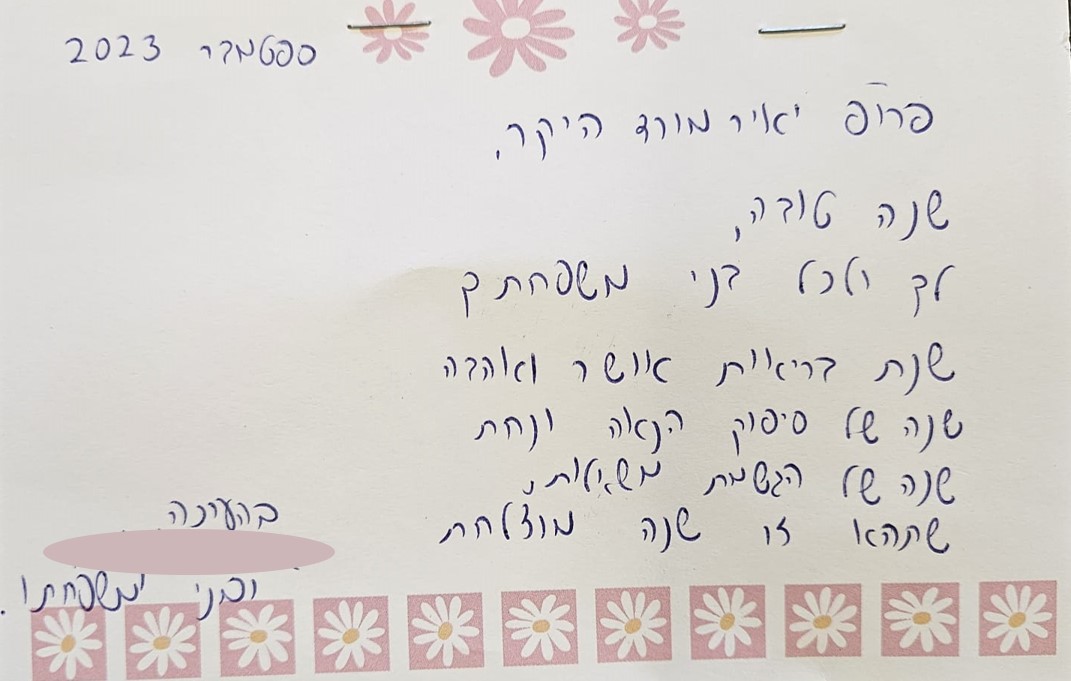 ספטמבר 2023
פרופ' יאיר מורד היקר,
שנה טובה,
לך ולכל בני משפחתך
שנת בריאות אושר ואהבה
שנה של סיפוק הנאה ונחת
שנה של הגשמת משאלות,
שתהא זו שנה מוצלחת
בהערכה
ובני משפחתו.